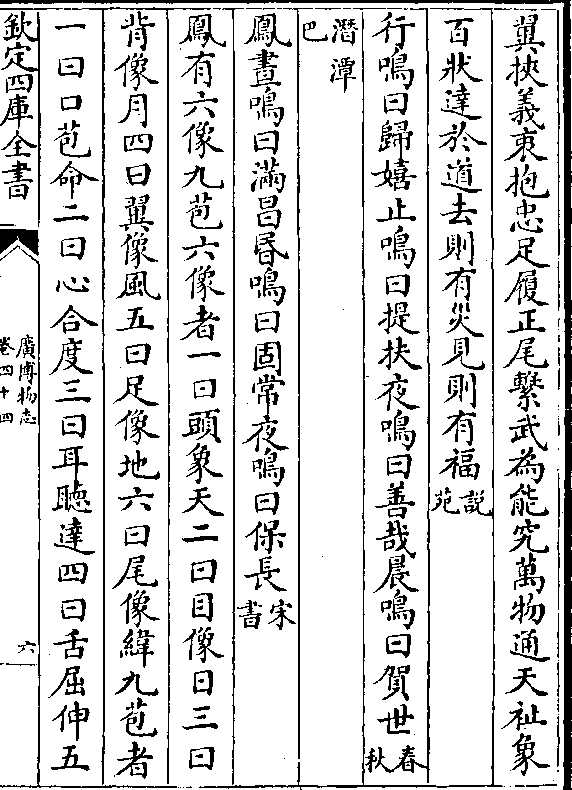 翼挾義衷抱忠足履正尾繫武為能究萬物通天祉象
百狀達於道去則有災見則有福說苑
行鳴曰歸嬉止鳴曰提扶夜鳴曰善哉晨鳴曰賀世春秋
潛潭巴
鳳晝鳴曰滿昌昬鳴曰固常夜鳴曰保長宋書
鳳有六像九苞六像者一曰頭象天二曰目像日三曰
背像月四曰翼像風五曰足像地六曰尾像緯九苞者
一曰口苞命二曰心合度三曰耳聽達四曰舌屈伸五
欽定四庫全書
廣博物志
卷四十四
六